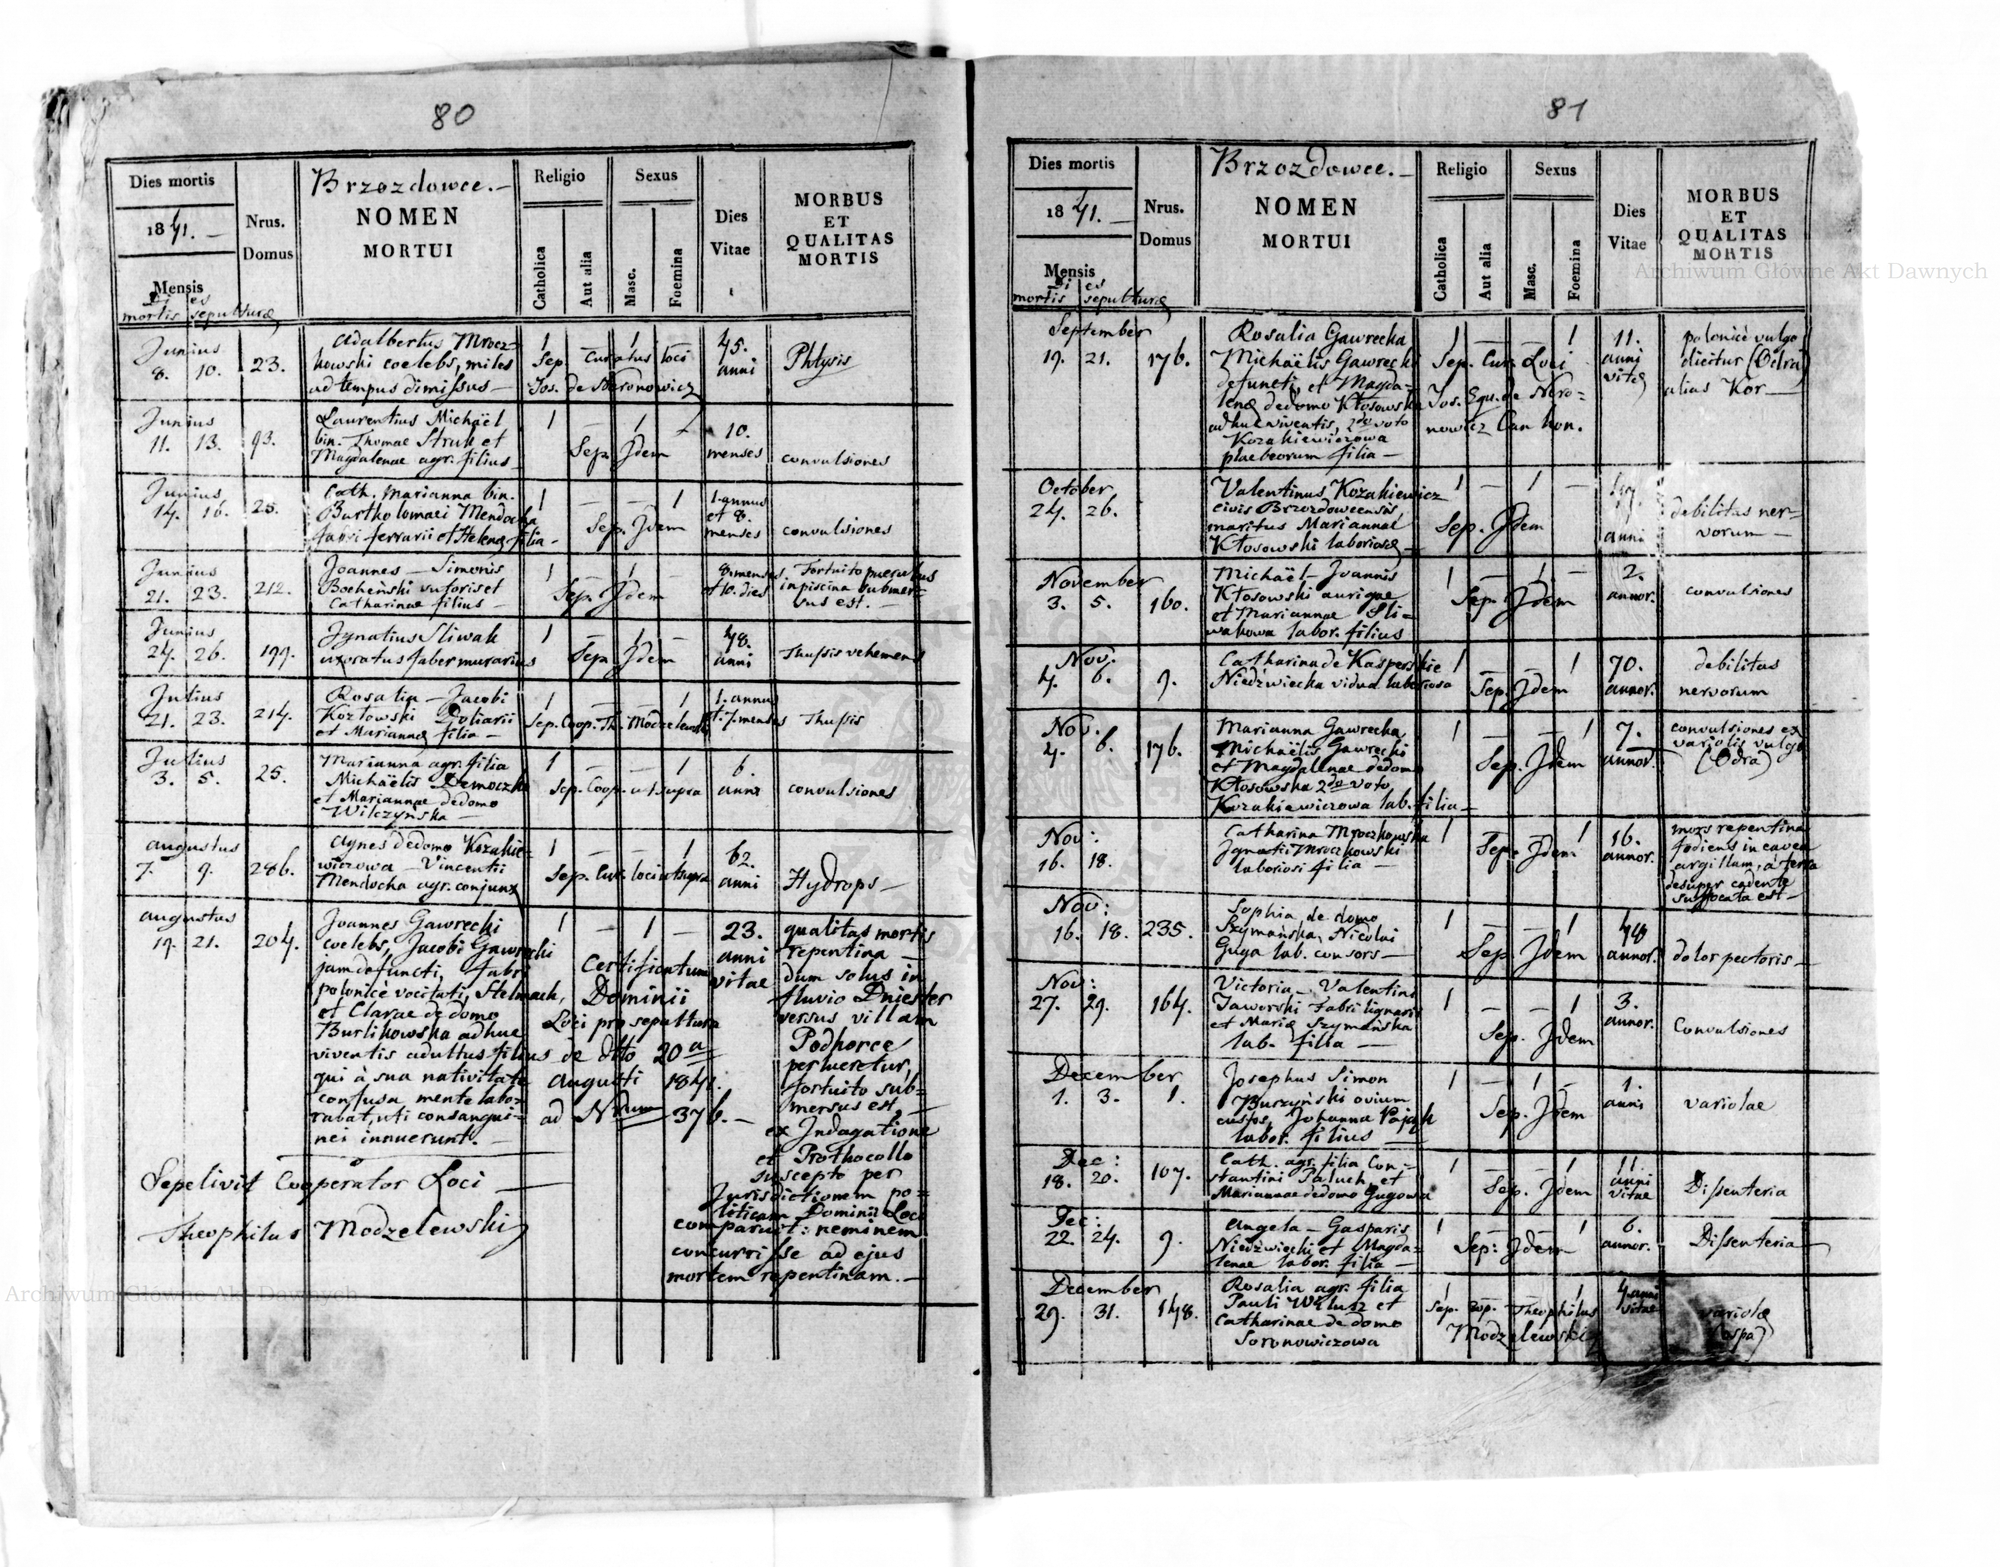 80
Dies mortis
1841.
Mensis
Dies
mortis sepulturæ
Nrus.
Domus
Brzozdowce.
NOMEN
MORTUI
Religio
Catholica
Aut alia
Sexus
Masc.
Foemina
Dies
Vitae
MORBUS
ET
QUALITAS
MORTIS
Junius
8. 10. 23.
Adalbertus Mrocz-
kowski coelebs, miles
ad tempus dimissus
1 1
Sep. Curatus loci
Jos. de Neronowicz
45.
anni
Phtysis
Junius
11. 13. 93.
Laurentius Michaël
bin. Thomae Struk et
Magdalenae agr. filius
1 — 1
Sep. Jdem
10.
menses
convulsiones
Junius
14. 16. 25.
Cath. Marianna bin.
Bartholomaei Mendocha
fabri ferrarii et Helenæ filia
1 — — 1
Sep. Jdem
1. annus
et 8.
menses
convulsiones
Junius
21. 23. 212.
Joannes — Simonis
Bocheński sutoris et
Catharinae filius
1 — 1 —
Sep. Jdem
8. menses
et 10. dies
Fortuito puerulus
in piscina submer-
sus est.
Junius
24. 26. 199.
Jgnatius Sliwak
uxoratus faber murarius
1 — 1 —
Sep. Jdem
48.
anni
Thussis vehemens
Julius
21. 23. 214.
Rosalia — Jacobi
Kozłowski Doliarii
et Mariannæ filia
1 — — 1
Sep. Coop. Th. Modzelewski
1. annus
et 7. menses
Thussis
Julius
3. 5. 25.
Marianna agr. filia
Michaëlis Democzko
et Mariannae de domo
Wilczyńska
1 — — 1
Sep. Coop. ut supra
6.
anni
convulsiones
Augustus
7. 9. 286.
Agnes de domo Kozakie-
wiczowa — Vincentii
Mendocha agr. conjunx
1 — — 1
Sep. Cur. loci ut supra
62.
anni
Hydrops
Augustus
19. 21. 204.
Joannes Gawrecki
coelebs, Jacobi Gawrecki
jam defuncti, fabri
polonicè vocitati, Stelmach,
et Clarae de domo
Burlikowska adhuc
viventis adultus filius
qui à sua nativitate
confusa mente labo-
rabat, uti consangui-
nei innuerunt.
1 — 1 —
Certificatum
Dominii
Loci pro sepultura
de dtto 20a
Augusti 1841.
ad Nrum 376.
23.
anni
vitae
qualitas mortis
repentina
dum solus in
fluvio Dniester
versus villam
Podhorce
perlueretur,
fortuito sub-
mersus est,
ex Jndagatione
et Prothocollo
suscepto per
Jurisdictionem po-
liticam Dominii Loci
comparuit: neminem
concurrisse ad ejus
mortem repentinam.
Sepelivit Cooperator Loci
Theophilus Modzelewski
81
Dies mortis
1841.
Mensis
Dies
mortis sepulturæ
Nrus.
Domus
Brzozdowce.
NOMEN
MORTUI
Religio
Catholica
Aut alia
Sexus
Masc.
Foemina
Dies
Vitae
MORBUS
ET
QUALITAS
MORTIS
September
19. 21. 176.
Rosalia Gawrecka
Michaëlis Gawrecki
defuncti, et Magda-
lenæ de domo Kłosowska
adhuc viventis, 2do voto
Kozakiewiczowa
plaebeorum filia
1 — — 1
Sep. Cur. Loci
Jos. Equ. de Nero-
nowicz Can hon.
11.
anni
vitæ
polonicè vulgo
dicitur (Odra)
alias Kor
October
24. 26.
Valentinus Kozakiewicz
civis Brzozdowcensis
maritus Mariannae
Kłosowski laboriosæ
1 — 1 —
Sep. Jdem
anni
debilitas ner-
vorum
November
3. 5. 160.
Michaël — Joannis
Kłosowski aurigae
et Mariannae Sli-
wakowa labor. filius
1 — 1 —
Sep. Jdem
2.
annor.
convulsiones
Nov.
4. 6. 9.
Catharina de Kasperskie
Niedźwiecka vidua laboriosa
1 — — 1
Sep. Jdem
70.
annor.
debilitas
nervorum
Nov.
4. 6. 176.
Marianna Gawrecka
Michaëlis Gawrecki
et Magdalenae de domo
Kłosowska 2do voto
Kozakiewiczowa lab. filia
1 — — 1
Sep. Jdem
7.
annor.
convulsiones ex
variolis vulgo
(Odra)
Nov:
16. 18.
Catharina Mroczkowska
Jgnatii Mroczkowski
laboriosi filia
1 — — 1
Sep. Jdem
16.
annor.
mors repentina
fodiens in cavea
argillam, à terra
desuper cadente
suffocata est
Nov:
16. 18. 235.
Sophia de domo
Szymańska, Nicolai
Guga lab. consors
1 — — 1
Sep. Jdem
48
annor.
dolor pectoris
Nov:
27. 29. 164.
Victoria — Valentini
Jaworski Fabri lignarii
et Mariæ Szymańska
lab. filia
1 — — 1
Sep. Jdem
3.
annor.
Convulsiones
December
1. 3. 1.
Josephus Simon
Burzyński ovium
custos, Johanna Pająk
labor. filius
1 — 1 —
Sep. Jdem
1.
anni
variolae
Dec:
18. 20. 107.
Cath. agr. filia Con-
stantini Paluch, et
Mariannae de domo Gugowa
1 — — 1
Sep. Jdem
11.
anni
vitae
Dissenteria
Dec:
22. 24. 9.
Angela — Gasparis
Niedźwiecki et Magda-
lenae labor. filia
1 — — 1
Sep: Jdem
6.
annor.
Dissenteria
December
29. 31. 148.
Rosalia agr. filia
Pauli et
Catharinae de domo
Soronowiczowa
1 — — 1
Sep. Cop. Theophilus
Modzelewski
4 anni
vitae
variolæ
(ospa)
Archiwum Główne Akt Dawnych
Archiwum Główne Akt Dawnych